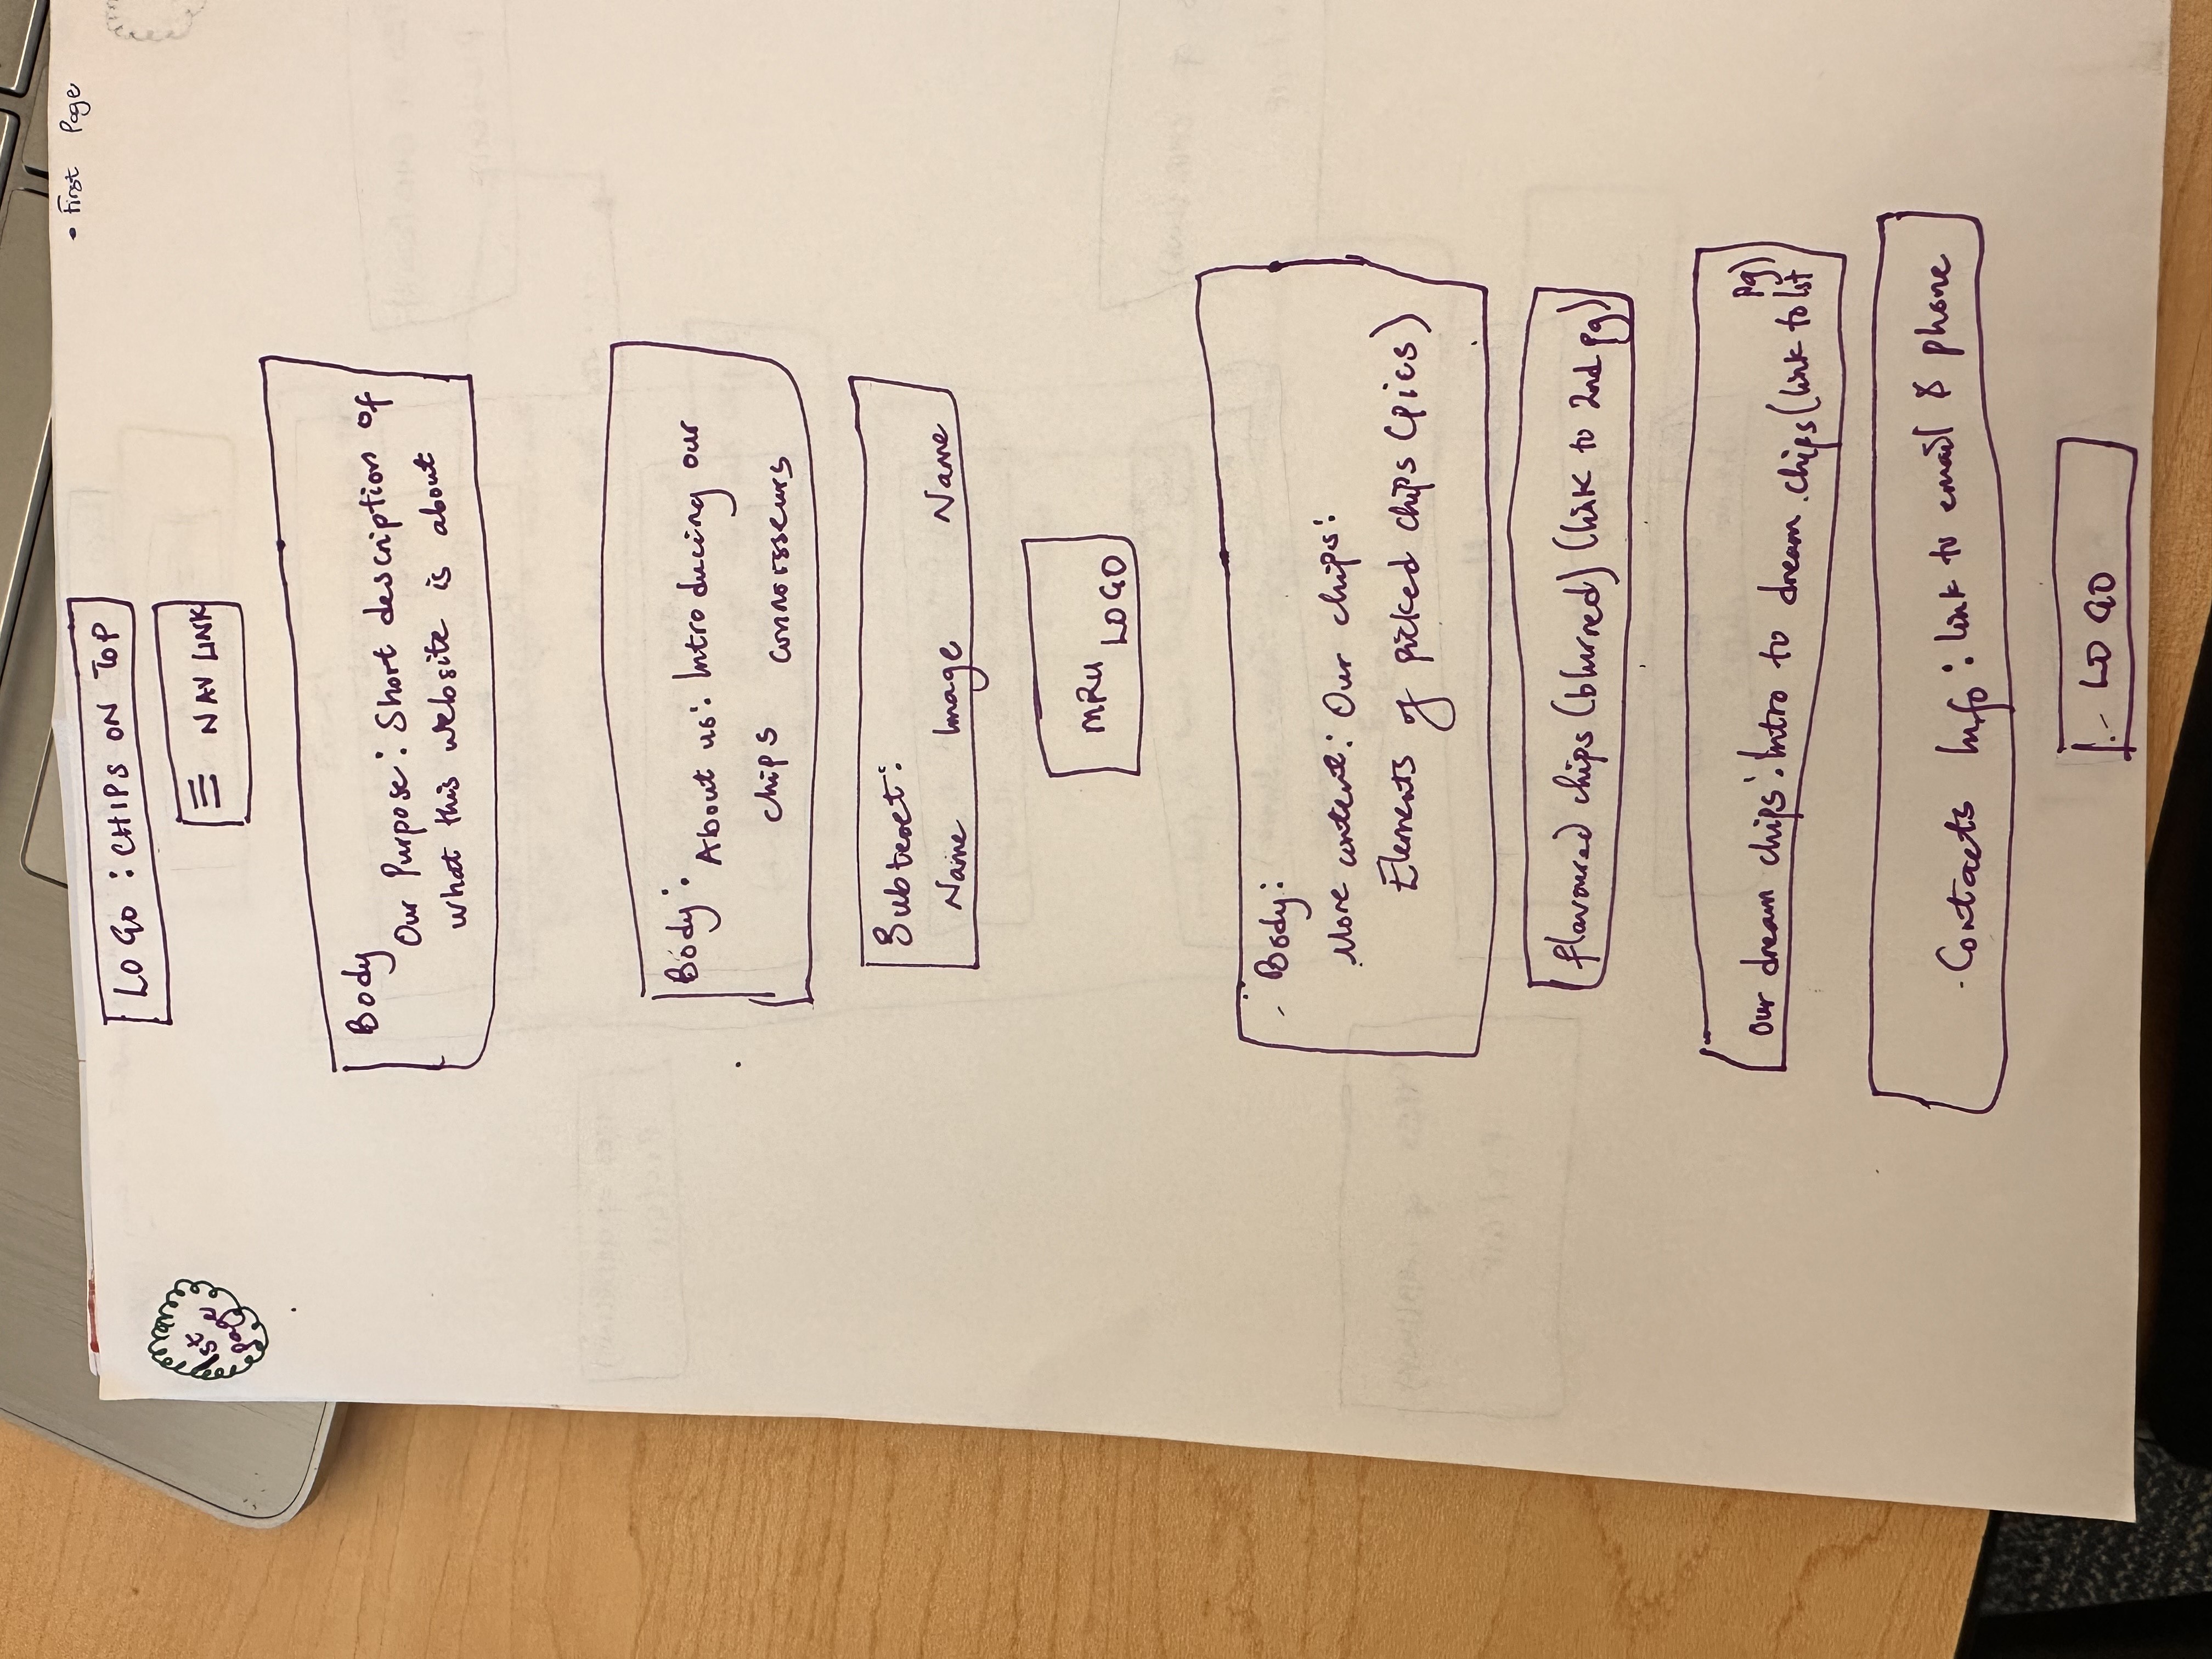 • First Page
LOGO : CHIPS ON TOP
1st
page
☰ NAV LINK
Body
Our Purpose: Short description of
what this website is about
Body:
About us: Introducing our
chips connoisseurs
Subtext:
Name Image Name
MRU
LOGO
Body:
More content: Our chips:
Elements of picked chips (pics)
flavoured chips (blurred) (link to 2nd pg)
our dream chips: Intro to dream chips (link to 1st
pg)
Contacts Info: link to email & phone
LOGO